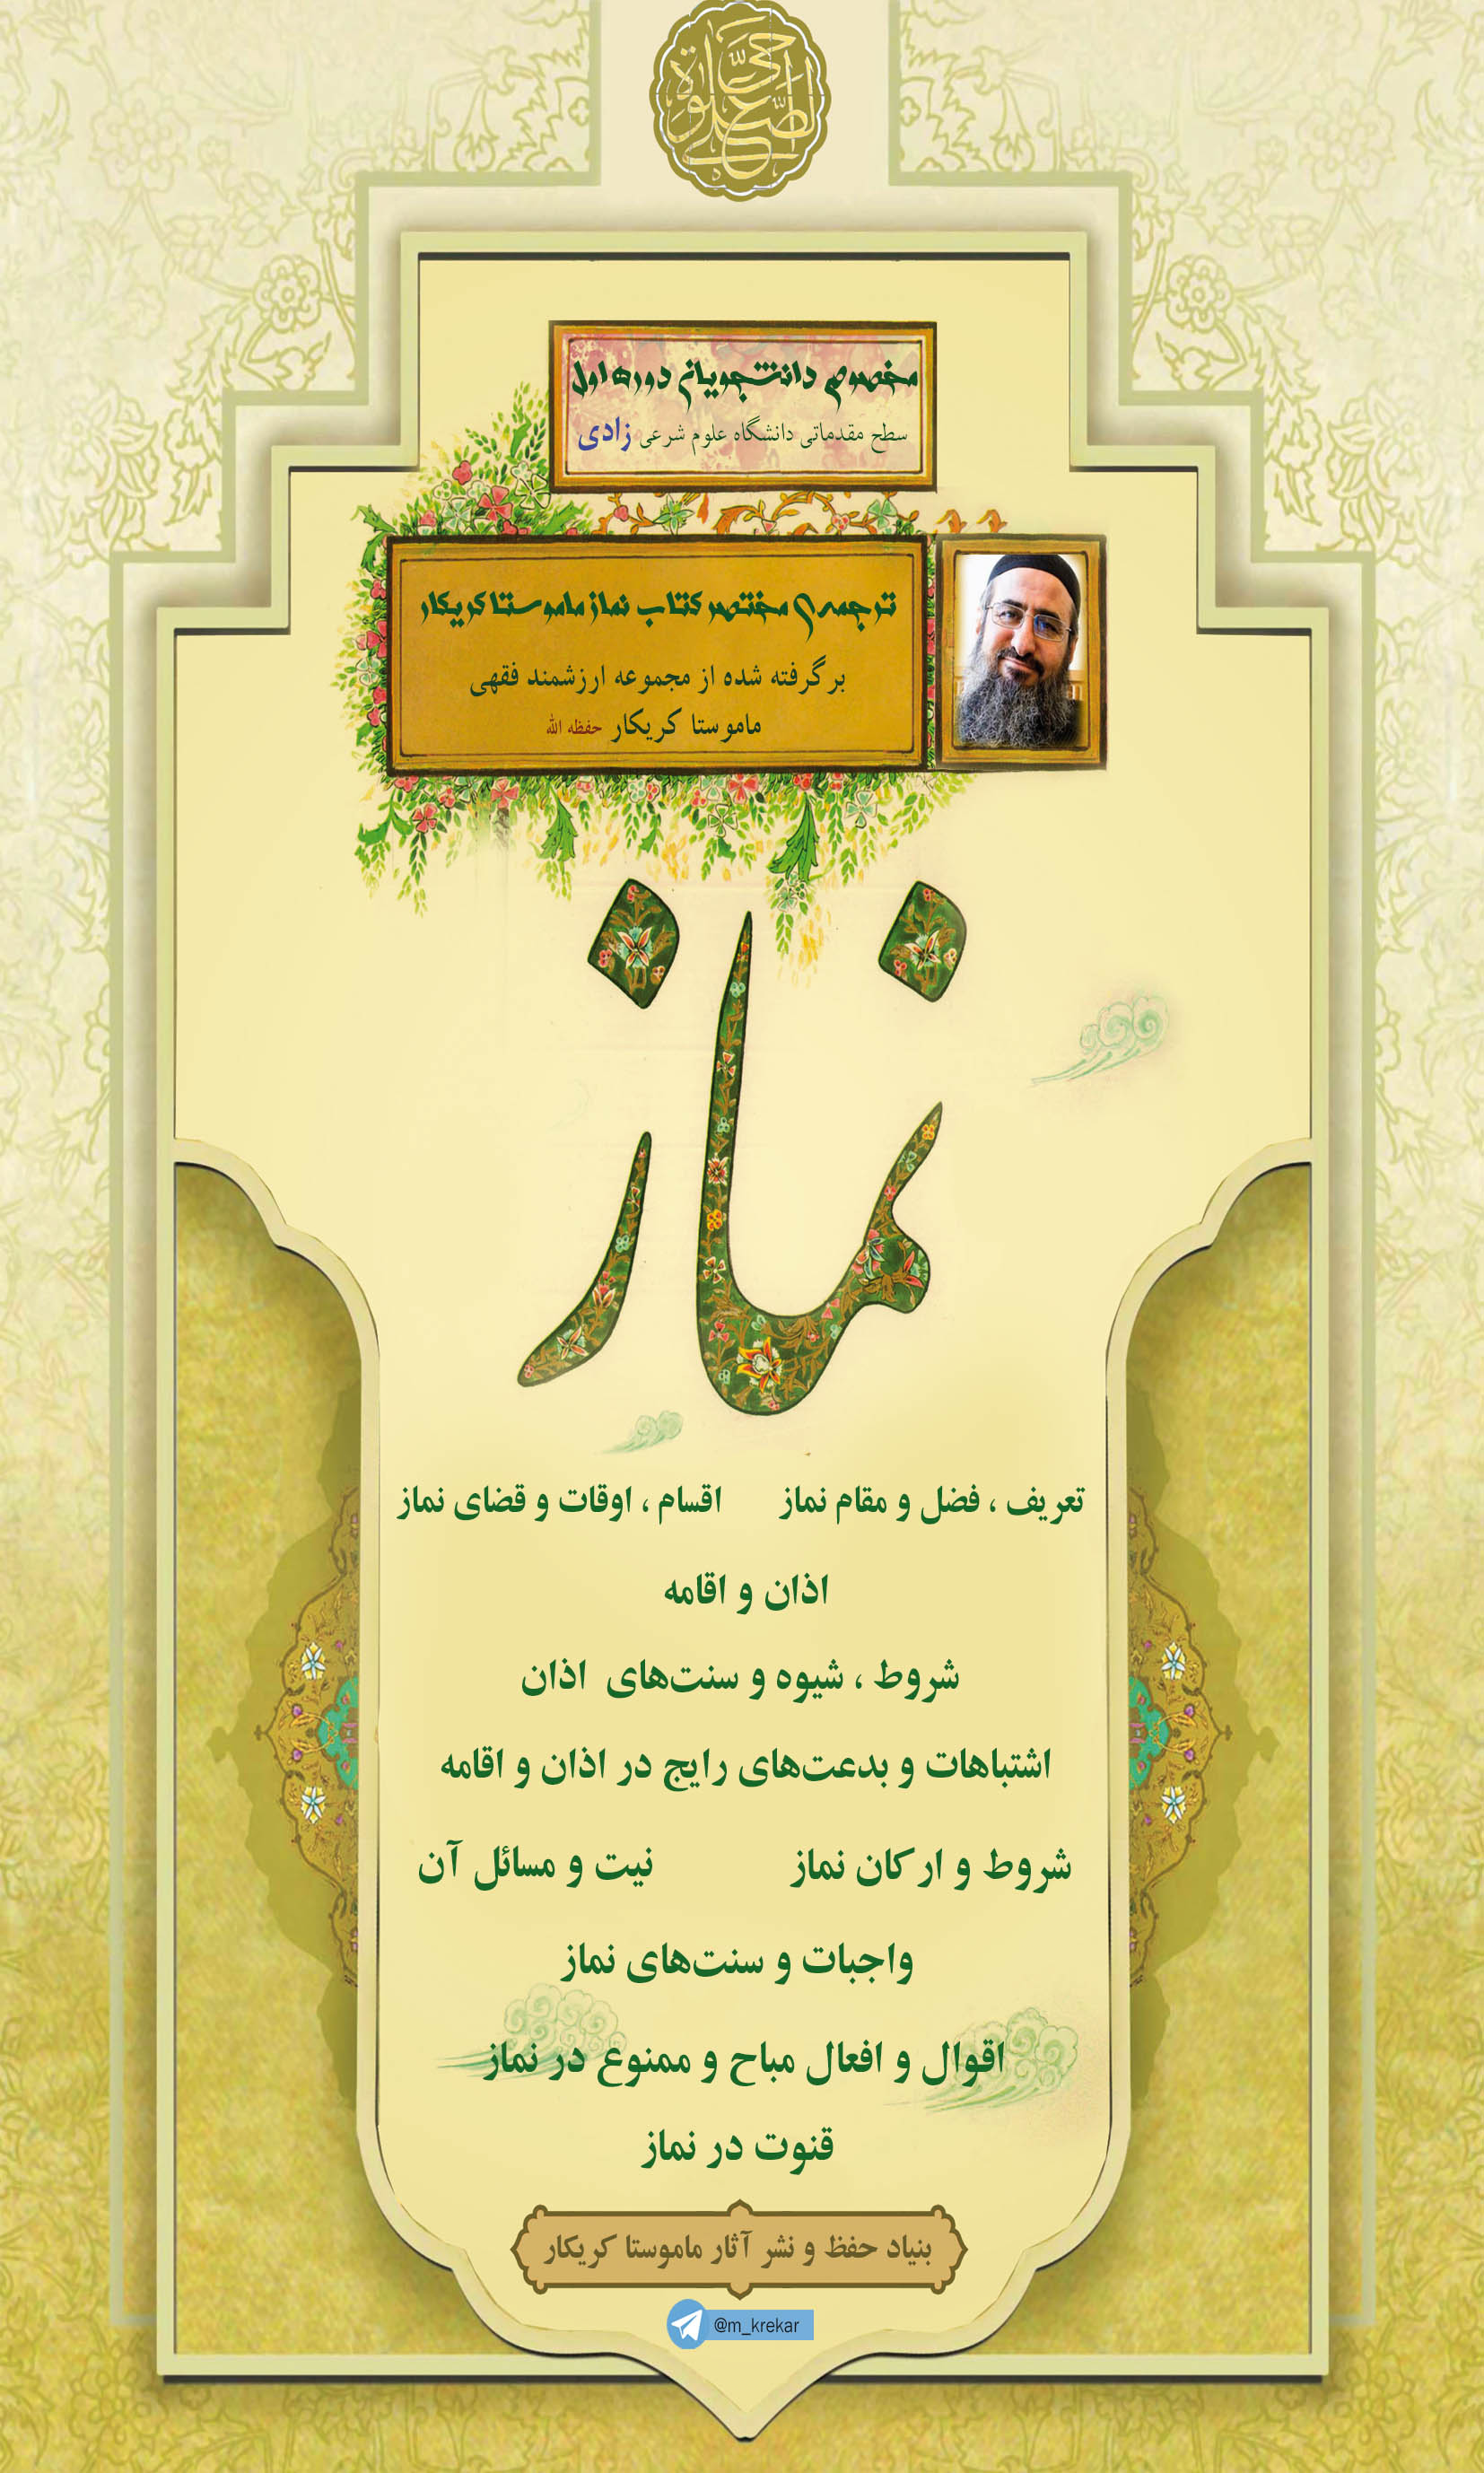 حی علی الصلوة
مخصوص دانشجویان دوره اول
سطح مقدماتی دانشگاه علوم شرعی زادی
ترجمه‌ی مختصر کتاب نماز ماموستا کریکار
برگرفته شده از مجموعه ارزشمند فقهی
ماموستا کریکار حفظه الله
نماز
تعریف ، فضل و مقام نماز اقسام ، اوقات و قضای نماز
اذان و اقامه
شروط ، شیوه و سنت‌های اذان
اشتباهات و بدعت‌های رایج در اذان و اقامه
شروط و ارکان نماز نیت و مسائل آن
واجبات و سنت‌های نماز
اقوال و افعال مباح و ممنوع در نماز
قنوت در نماز
بنیاد حفظ و نشر آثار ماموستا کریکار
@m_krekar